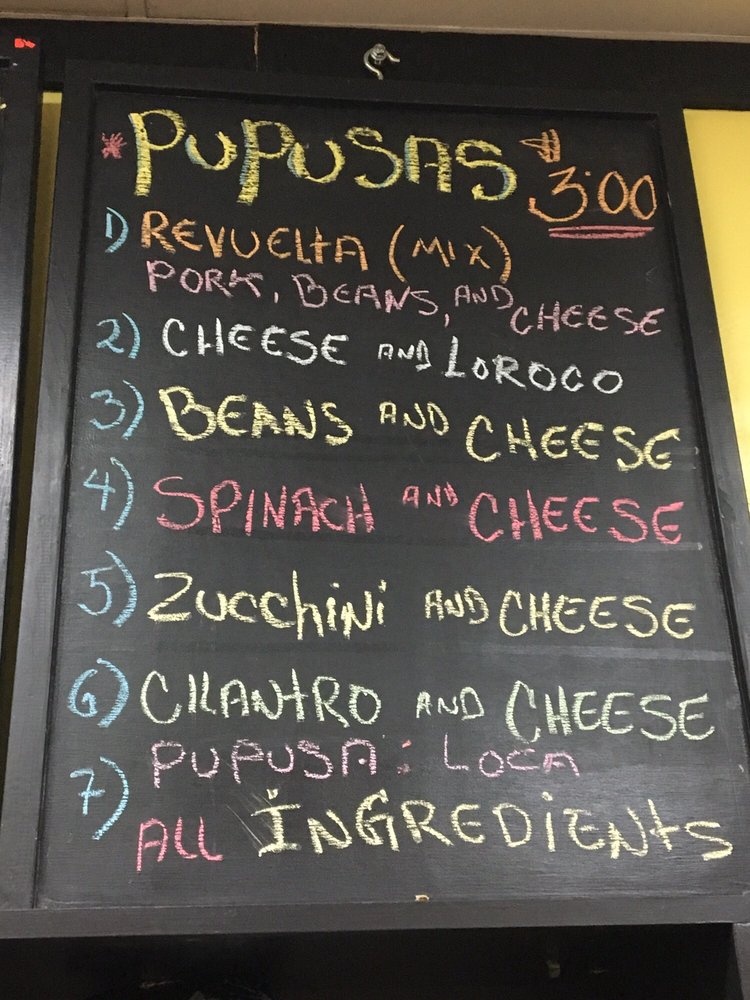 *PUPUSAS $3.00
1) REVUELTA (MIX)
PORK, BEANS, AND CHEESE
2) CHEESE AND LOROCO
3) BEANS AND CHEESE
4) SPINACH AND CHEESE
5) ZUCCHINI AND CHEESE
6) CILANTRO AND CHEESE
7) PUPUSA: LOCA
ALL INGREDIENTS